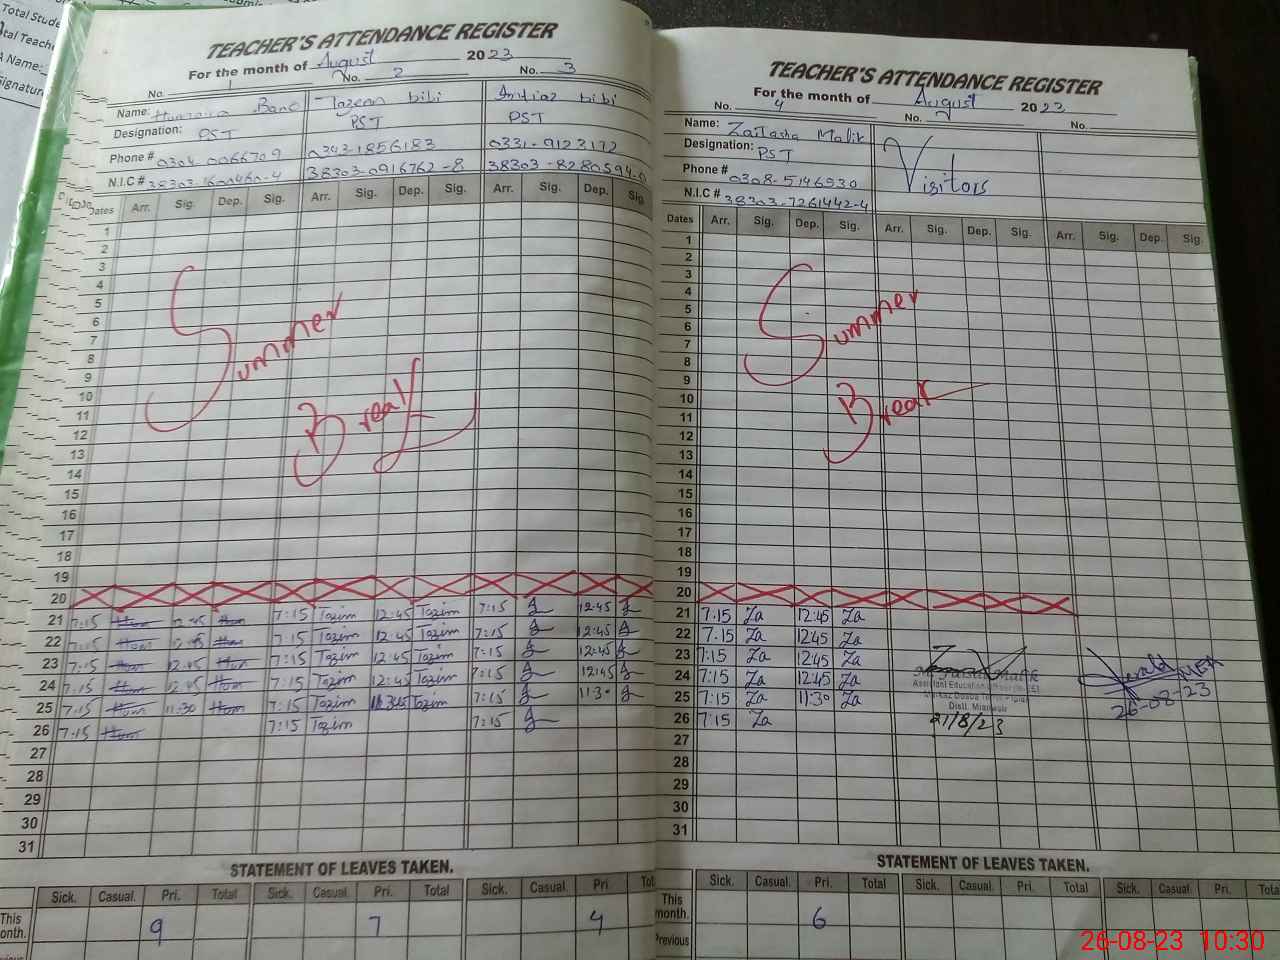 Total Stude
tal Teache
A Name:
Signatur
TEACHER'S ATTENDANCE REGISTER
For the month of August 2023
No. 1 No. 2 No. 3
Name: Bano Tazeem bibi Imtiaz bibi
Designation: PST PST PST
Phone # 0304-0066709 0343-1856183 0331-9123172
N.I.C # 38303-0916762-8 38303-8280594-0
Dates Arr. Sig. Dep. Sig. Arr. Sig. Dep. Sig. Arr. Sig. Dep. Sig.
1
2
3
4
5
6
7
8
9
10
11
12
13
14
15
16
17
18
19
20
Summer
Break
21 7:15 Hum 12:45 Hum 7:15 Tazim 12:45 Tazim 7:15 12:45
22 7:15 Hum 12:45 Hum 7:15 Tazim 12:45 Tazim 7:15 12:45
23 7:15 Hum 12:45 Hum 7:15 Tazim 12:45 Tazim 7:15 12:45
24 7:15 Hum 12:45 Hum 7:15 Tazim 12:45 Tazim 7:15 12:45
25 7:15 Hum 11:30 Hum 7:15 Tazim Tazim 7:15 11:30
26 7:15 Hum 7:15 Tazim 7:15
27
28
29
30
31
STATEMENT OF LEAVES TAKEN.
Sick. Casual. Pri. Total Sick. Casual. Pri. Total Sick. Casual. Pri. Tot
This onth. 9 7 4
TEACHER'S ATTENDANCE REGISTER
For the month of August 2023
No. 4 No. No.
Name: Zaitasha Malik
Designation: PST
Phone # 0308-5146930
N.I.C # 38303-7261442-4
Visitors
Dates Arr. Sig. Dep. Sig. Arr. Sig. Dep. Sig. Arr. Sig. Dep. Sig.
1
2
3
4
5
6
7
8
9
10
11
12
13
14
15
16
17
18
19
20
Summer
Break
21 7:15 Za 12:45 Za
22 7:15 Za 1245 Za
23 7:15 Za 1245 Za
24 7:15 Za 12:45 Za
25 7:15 Za 11:30 Za
26 7:15 Za
27
28
29
30
31
Malik
Assistant Education
Distt. Mianwali
21/8/23
MEA
26-08-23
STATEMENT OF LEAVES TAKEN.
Sick. Casual. Pri. Total Sick. Casual. Pri. Total Sick. Casual. Pri. Tota
This month. 6
Previous
26-08-23 10:30